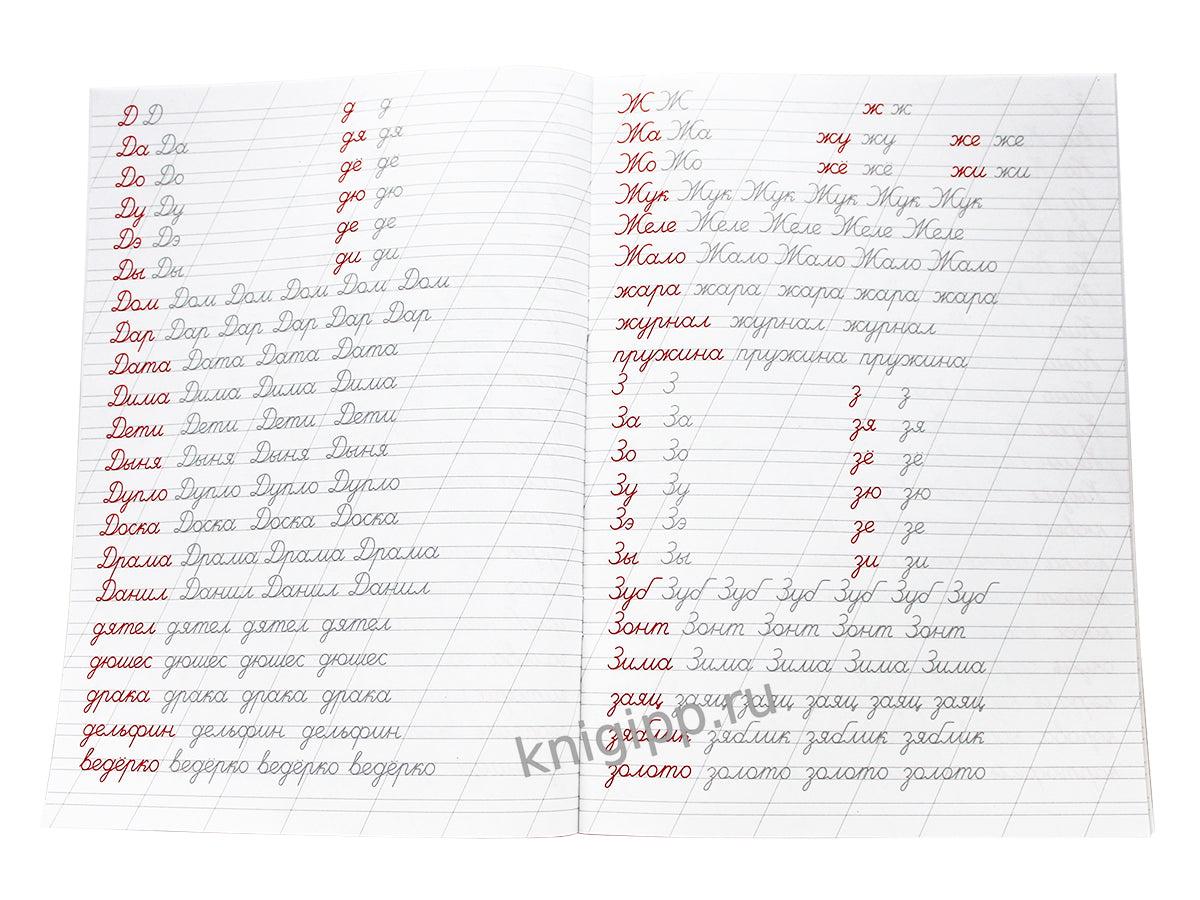 Д Д д д
Да Да дя дя
До До дё дё
Ду Ду дю дю
Дэ Дэ де де
Ды Ды ди ди
Дом Дом Дом Дом Дом Дом
Дар Дар Дар Дар Дар Дар
Дата Дата Дата Дата
Дима Дима Дима Дима
Дети Дети Дети Дети
Дыня Дыня Дыня Дыня
Дупло Дупло Дупло Дупло
Доска Доска Доска Доска
Драма Драма Драма Драма
Данил Данил Данил Данил
дятел дятел дятел дятел
дюшес дюшес дюшес дюшес
драка драка драка драка
дельфин дельфин дельфин
ведёрко ведёрко ведёрко ведёрко
Ж Ж ж ж
Жа Жа жу жу же же
Жо Жо жё жё жи жи
Жук Жук Жук Жук Жук Жук
Желе Желе Желе Желе Желе
Жало Жало Жало Жало Жало
жара жара жара жара жара
журнал журнал журнал
пружина пружина пружина
З З з з
За За зя зя
Зо Зо зё зё
Зу Зу зю зю
Зэ Зэ зе зе
Зы Зы зи зи
Зуб Зуб Зуб Зуб Зуб Зуб Зуб
Зонт Зонт Зонт Зонт Зонт
Зима Зима Зима Зима Зима
заяц заяц заяц заяц заяц заяц
зяблик зяблик зяблик зяблик
золото золото золото золото
knigipp.ru